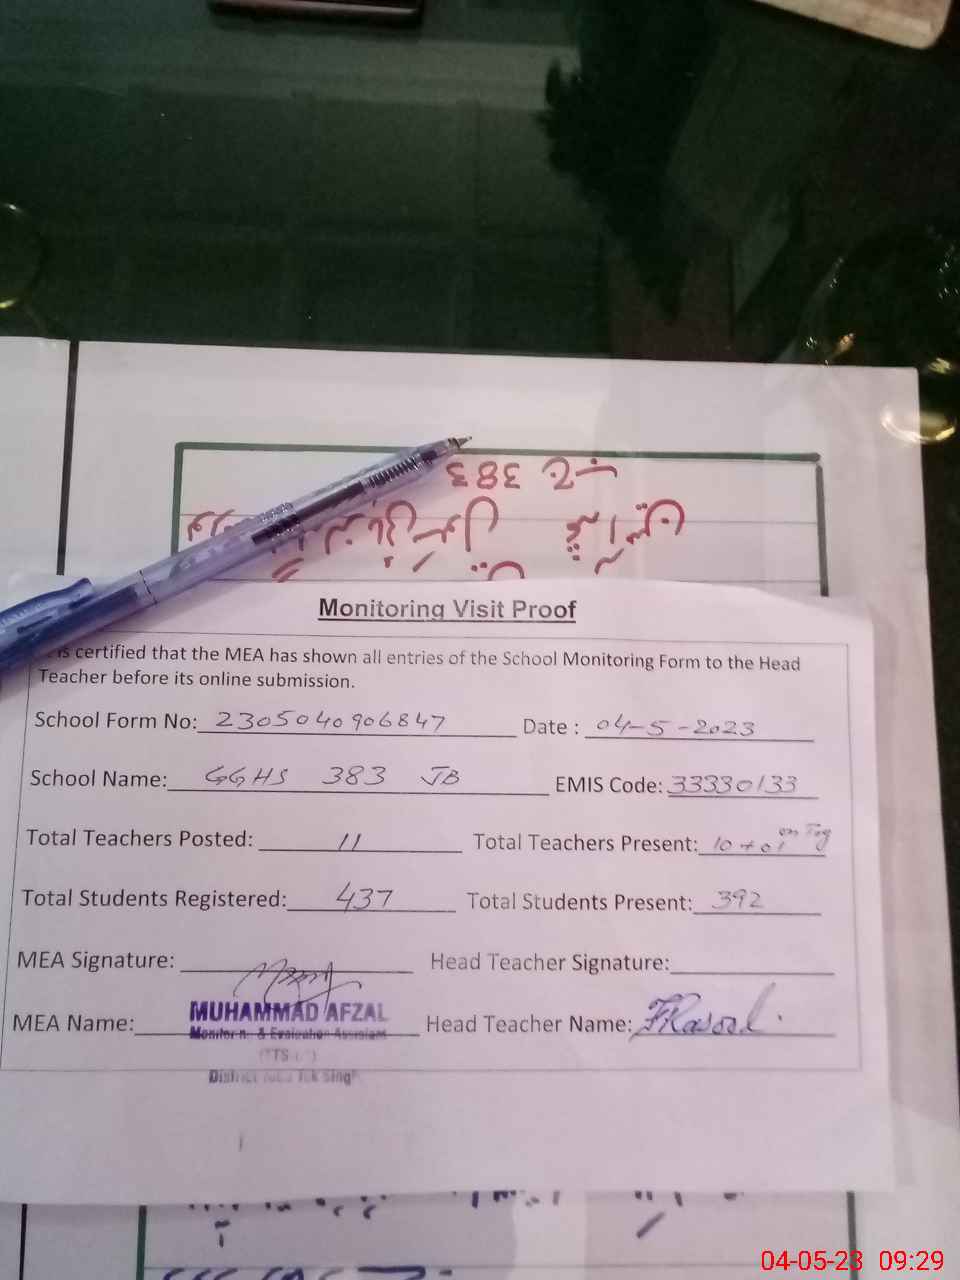 383
Monitoring Visit Proof
is certified that the MEA has shown all entries of the School Monitoring Form to the Head
Teacher before its online submission.
School Form No: 2305040906847 Date : 04-5-2023
School Name: GGHS 383 JB EMIS Code: 33330133
Total Teachers Posted: 11 Total Teachers Present: 10+01 on
Total Students Registered: 437 Total Students Present: 392
MEA Signature: Head Teacher Signature:
MEA Name: MUHAMMAD AFZAL Head Teacher Name: FRasool
Monitoring & Evaluation Assistant
District Toba Tek Singh
04-05-23 09:29